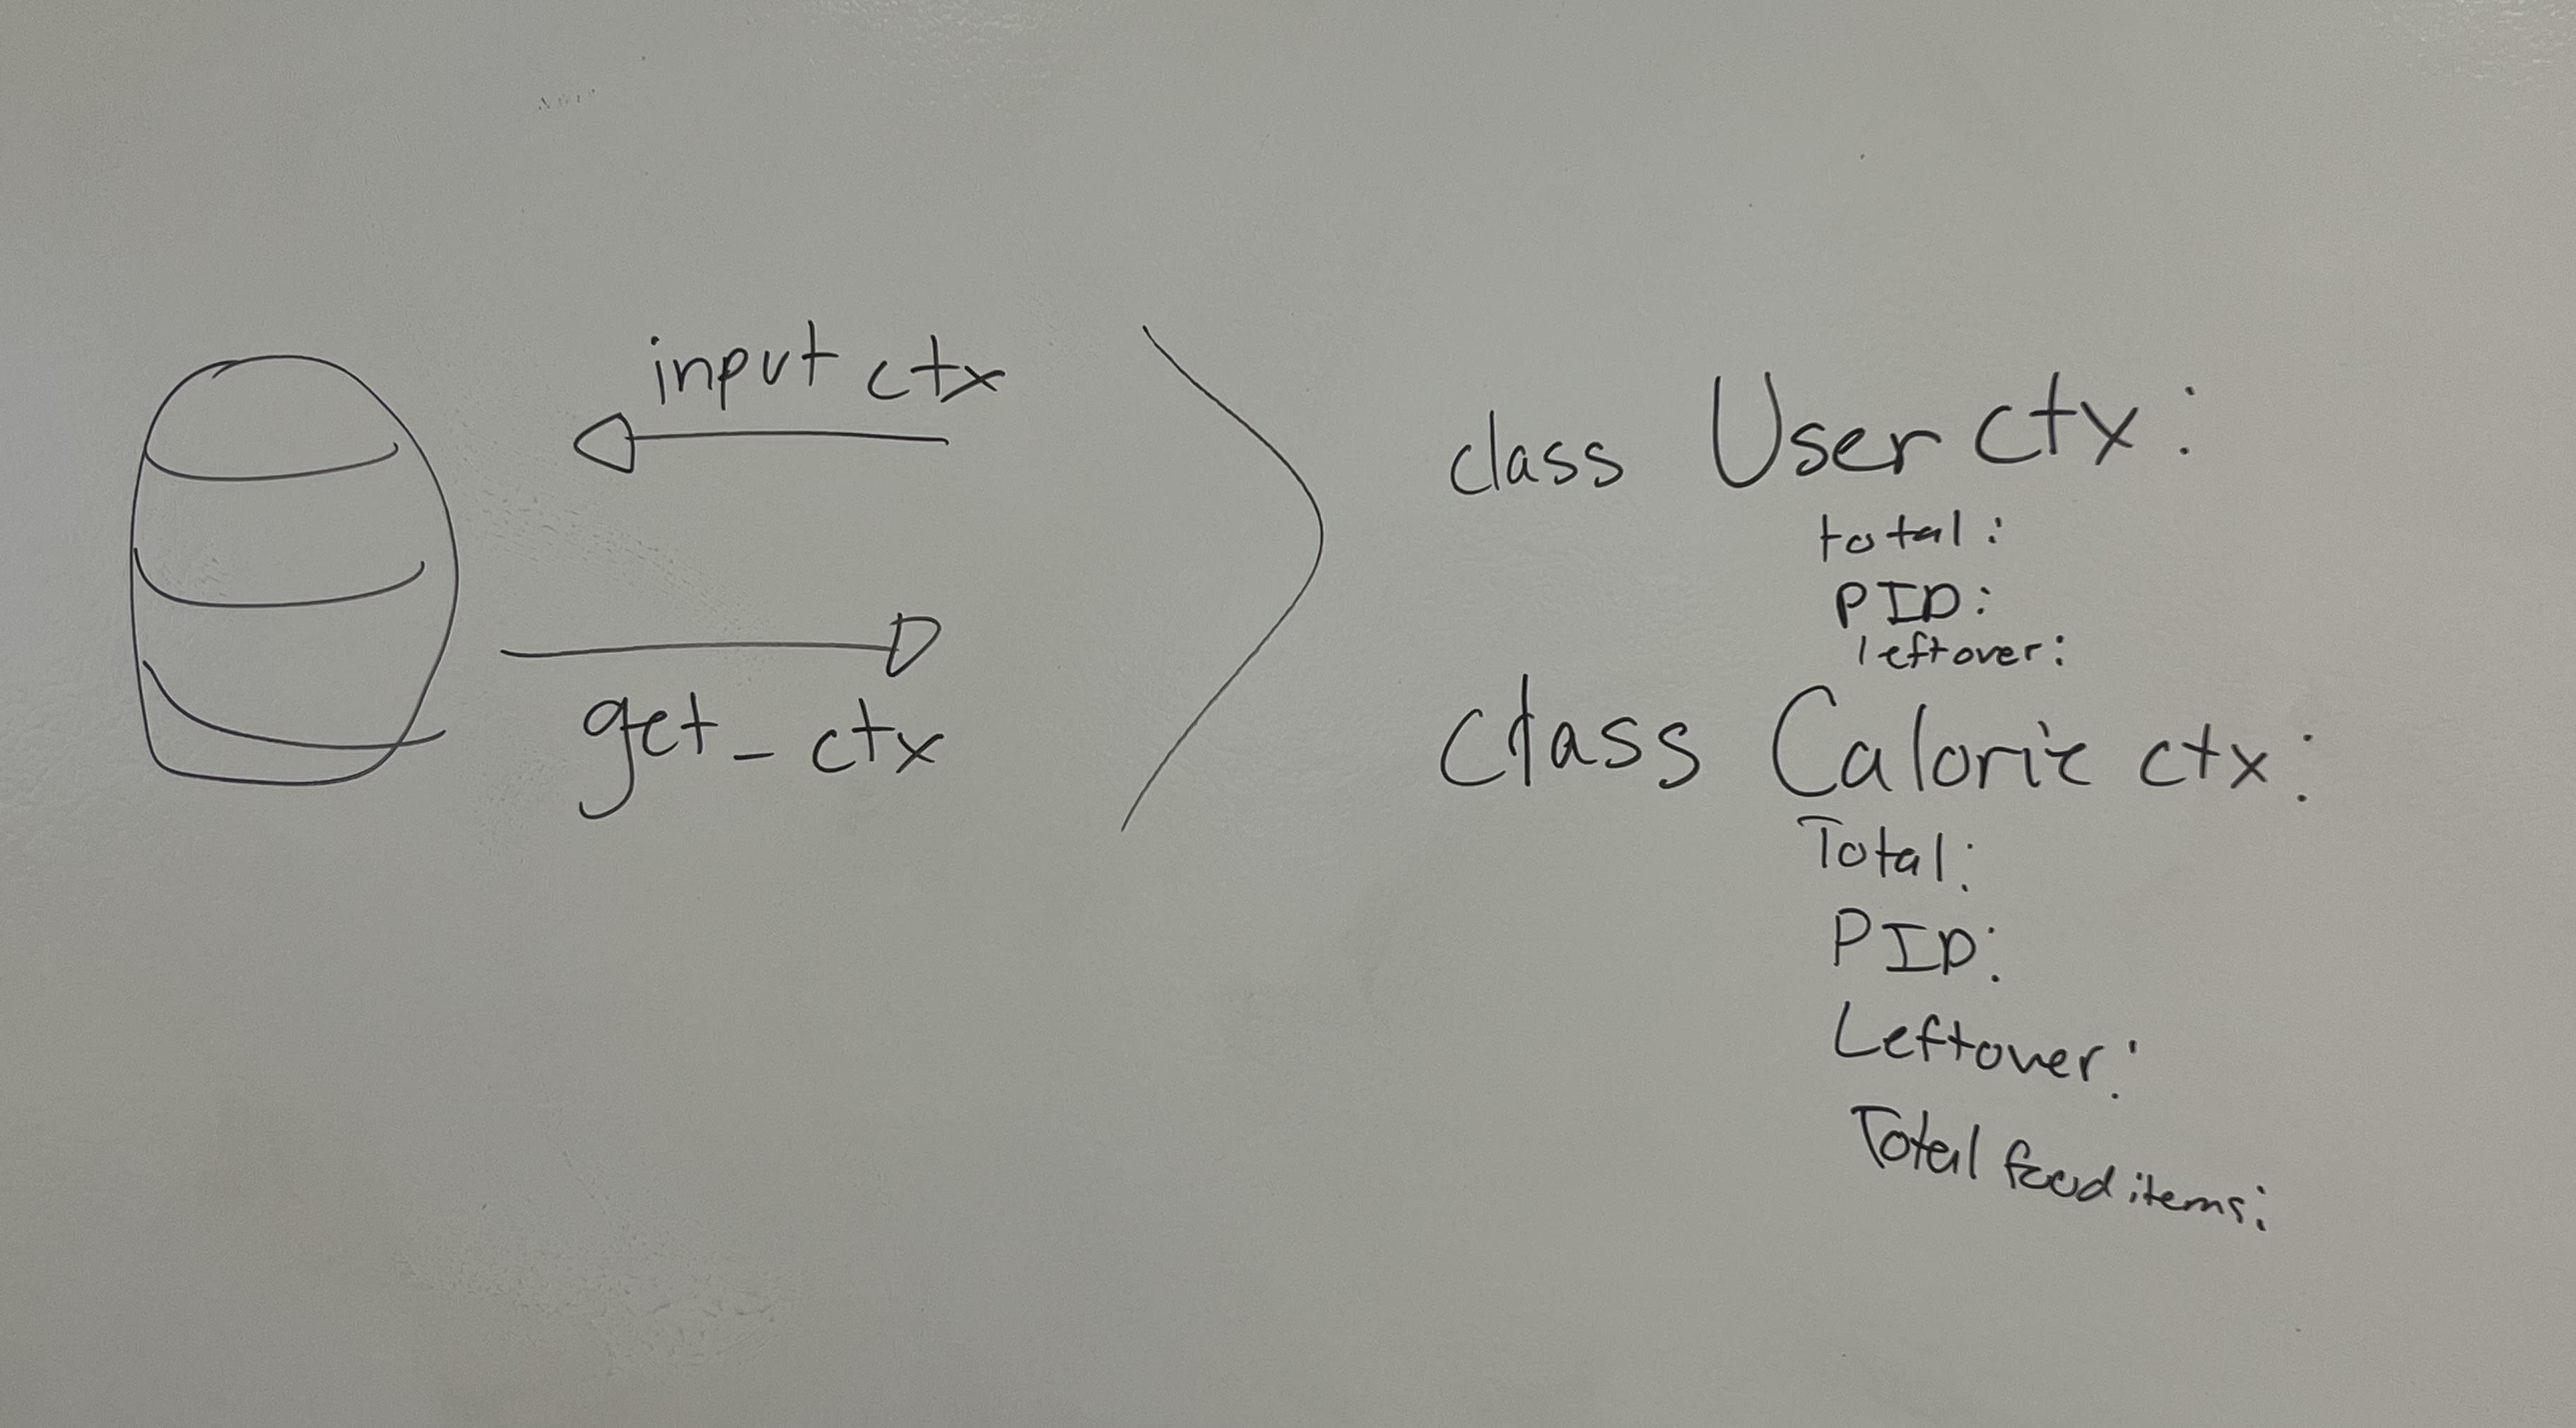 input ctx
get_ctx
class User ctx:
total:
PID:
leftover:
class Calorie ctx:
Total:
PID:
Leftover:
Total food items: